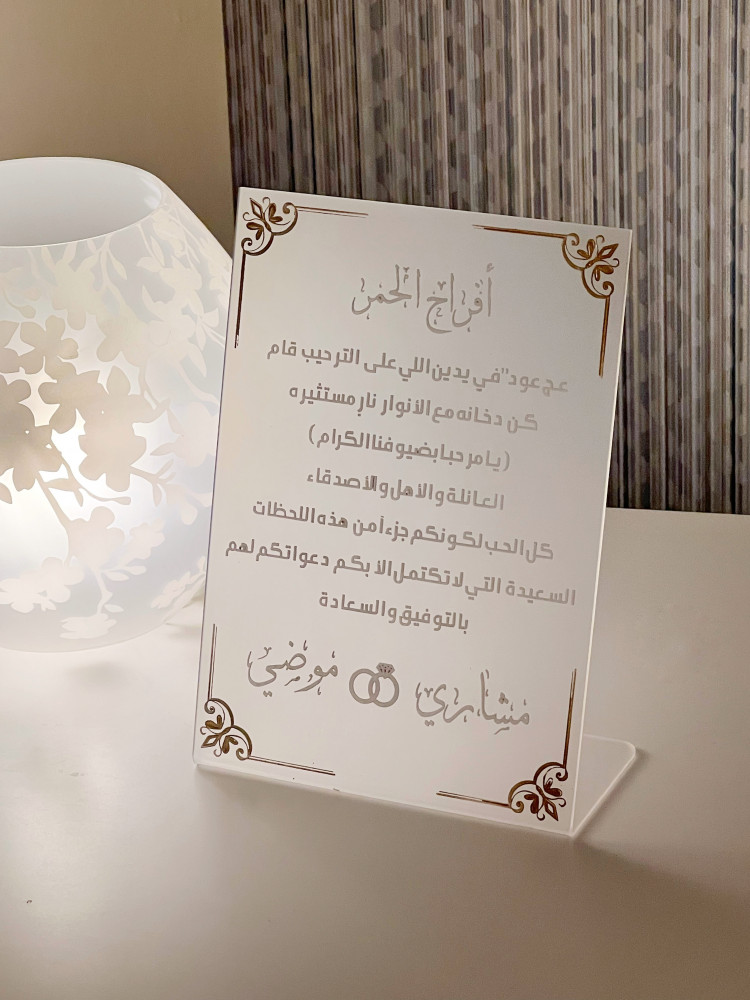 أفراح الحمر
عج عود "في يدين اللي على الترحيب قام
كن دخانه مع الأنوار نارٍ مستثيره
(يا مرحبا بضيوفنا الكرام)
العائلة والأهل والأصدقاء
كل الحب لكونكم جزءاً من هذه اللحظات
السعيدة التي لا تكتمل الا بكم دعواتكم لهم
بالتوفيق والسعادة
مشاري موضي